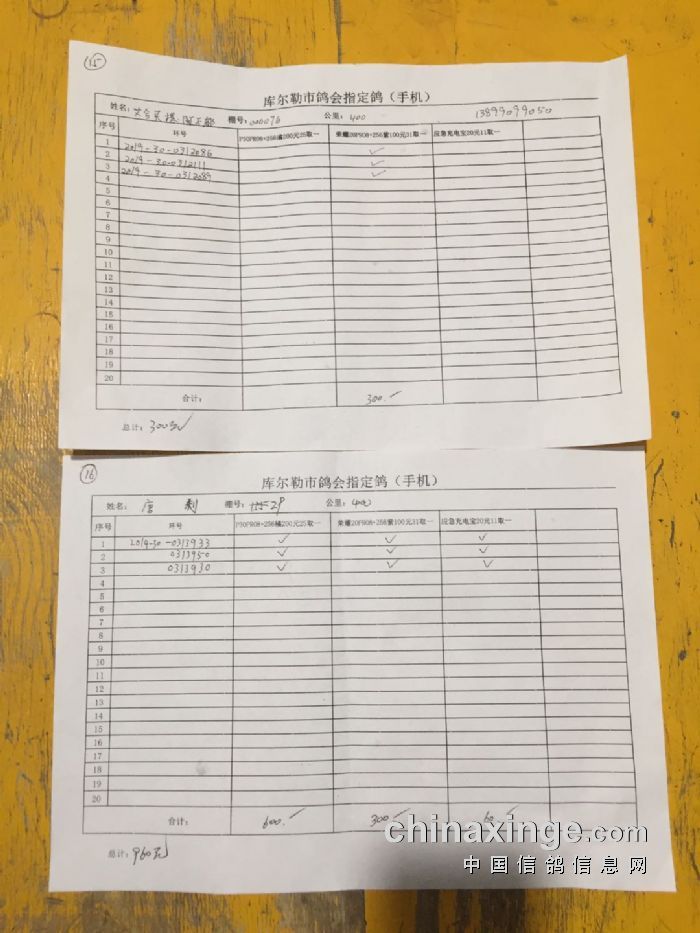 15
库尔勒市鸽会指定鸽（手机）
姓名： 棚号：000076 公里：400 13899099050
序号 环号 P30PRO8+256 200元25取一 荣耀20PRO8+256 100元31取一 应急充电宝20元11取一
1 2019-30-0312086 ✓
2 2019-30-0312111 ✓
3 2019-30-0312089 ✓
4
5
6
7
8
9
10
11
12
13
14
15
16
17
18
19
20
合计： 300.
总计：300元
16
库尔勒市鸽会指定鸽（手机）
姓名：唐 棚号： 29 公里：400
序号 环号 P30PRO8+256 200元25取一 荣耀20PRO8+256 100元31取一 应急充电宝20元11取一
1 2019-30-0313933 ✓ ✓ ✓
2 0313950 ✓ ✓ ✓
3 0313930 ✓ ✓ ✓
4
5
6
7
8
9
10
11
12
13
14
15
16
17
18
19
20
合计： 600. 300. 60.
总计：960元
chinaxinge.com
中国信鸽信息网